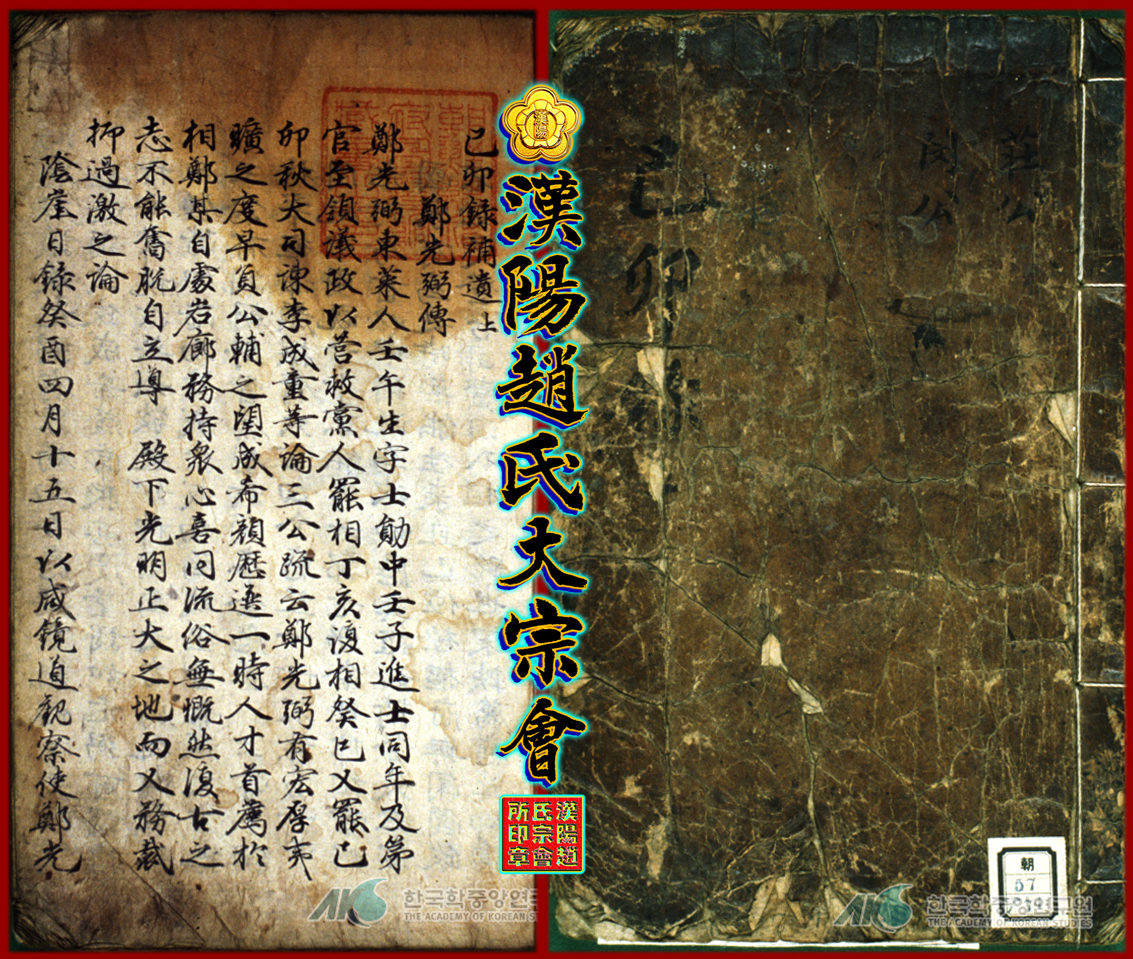 己卯錄補遺上
鄭光弼傳
鄭光弼東萊人壬午生字士勛中壬子進士同年及第
官至領議政以營救黨人罷相丁亥復相癸巳又罷己
卯秋大司諫李成童等論三公疏云鄭光弼有宏厚夷
曠之度早負公輔之望成希顔歷選一時人才首薦於
相鄭某自處岩廊務持衆心喜同流俗無慨然復古之
志不能奮脫自立導 殿下光明正大之地而又務裁
抑過激之論
陰崖日錄癸酉四月十五日以咸鏡道觀察使鄭光
漢陽
漢陽趙氏大宗會
漢陽趙
氏宗會
所印章
己卯錄
朝
57
한국학중앙연구
THE ACADEMY OF KOREAN STUDIES
한국학중앙연구원
THE ACADEMY OF KOREAN STUDIES